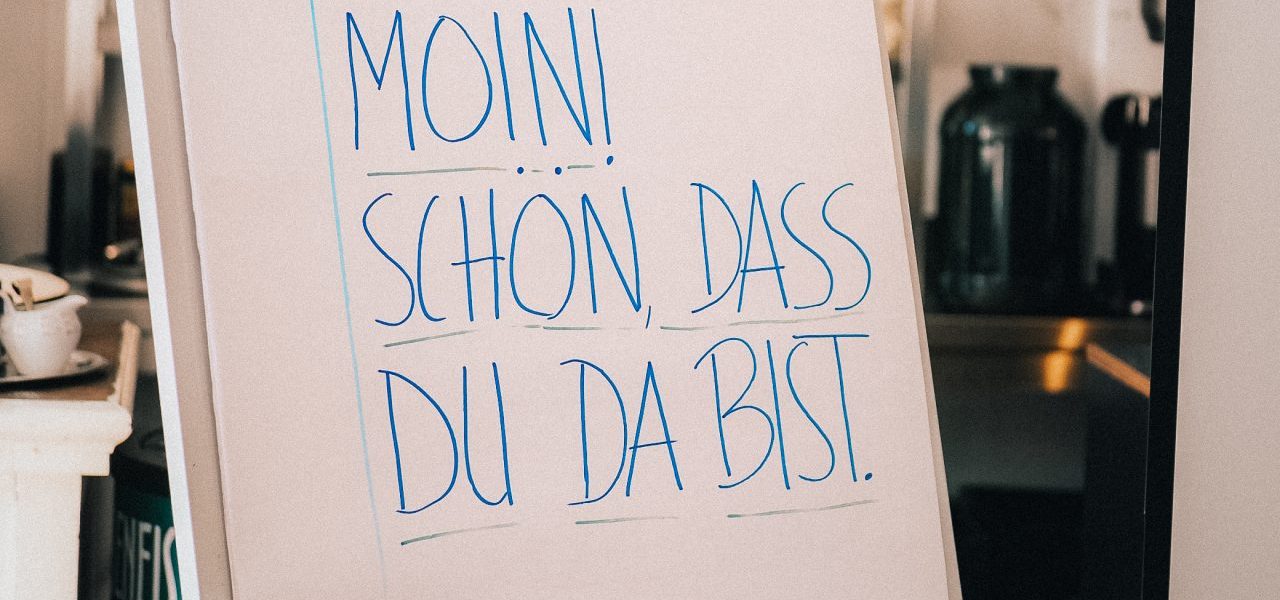 MOIN!
SCHÖN, DASS
DU DA BIST.